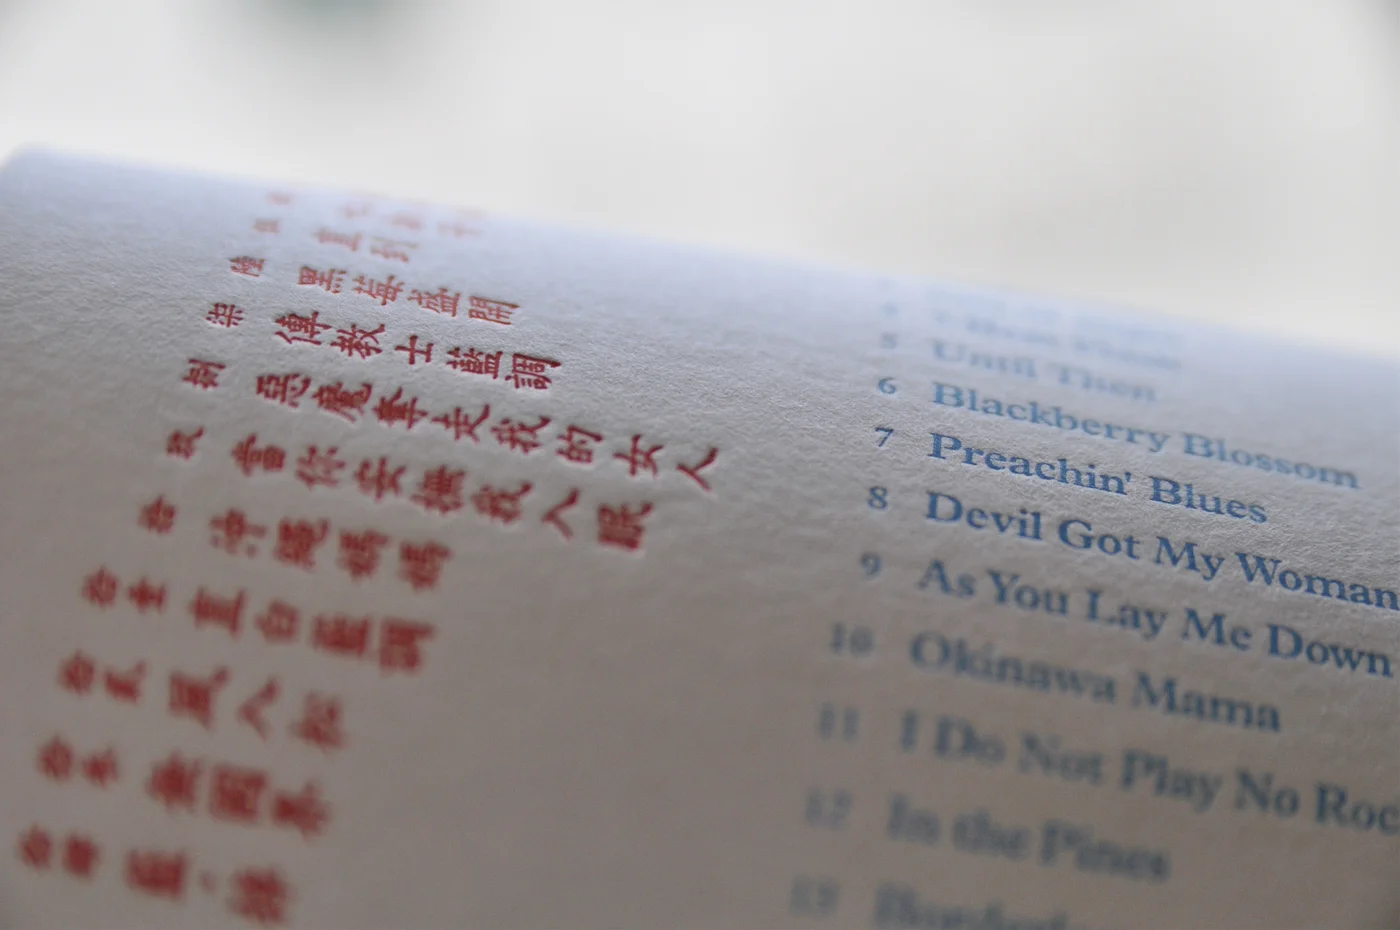 陸 黑莓盛開
柒 傳教士藍調
捌 惡魔奪走我的女人
玖 當你安撫我入眠
拾 沖繩媽媽
拾壹 直白藍調
拾貳 風入松
藍
5 Until Then
6 Blackberry Blossom
7 Preachin' Blues
8 Devil Got My Woman
9 As You Lay Me Down
10 Okinawa Mama
11 I Do Not Play No Roc
12 In the Pines
13